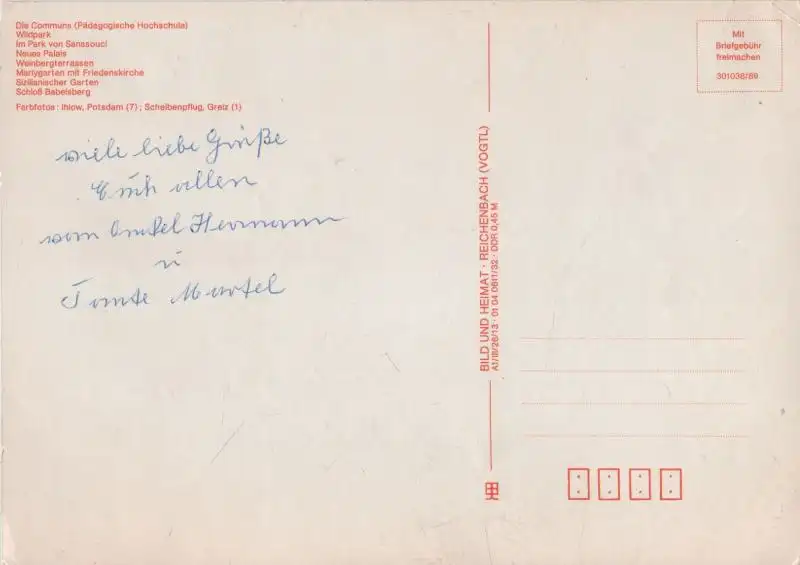 Die Communs (Pädagogische Hochschule)
Wildpark
Im Park von Sanssouci
Neues Palais
Weinbergterrassen
Marlygarten mit Friedenskirche
Sizilianischer Garten
Schloß Babelsberg
Farbfotos: Ihlow, Potsdam (7); Scheibenpflug, Greiz (1)
viele liebe Grüße
Euch allen
vom Onkel Hermann
u
Tante Martel
BILD UND HEIMAT · REICHENBACH (VOGTL)
A1/III/26/13 · 01 04 0611/32 · DDR 0,45 M
Mit
Briefgebühr
freimachen
301038/89